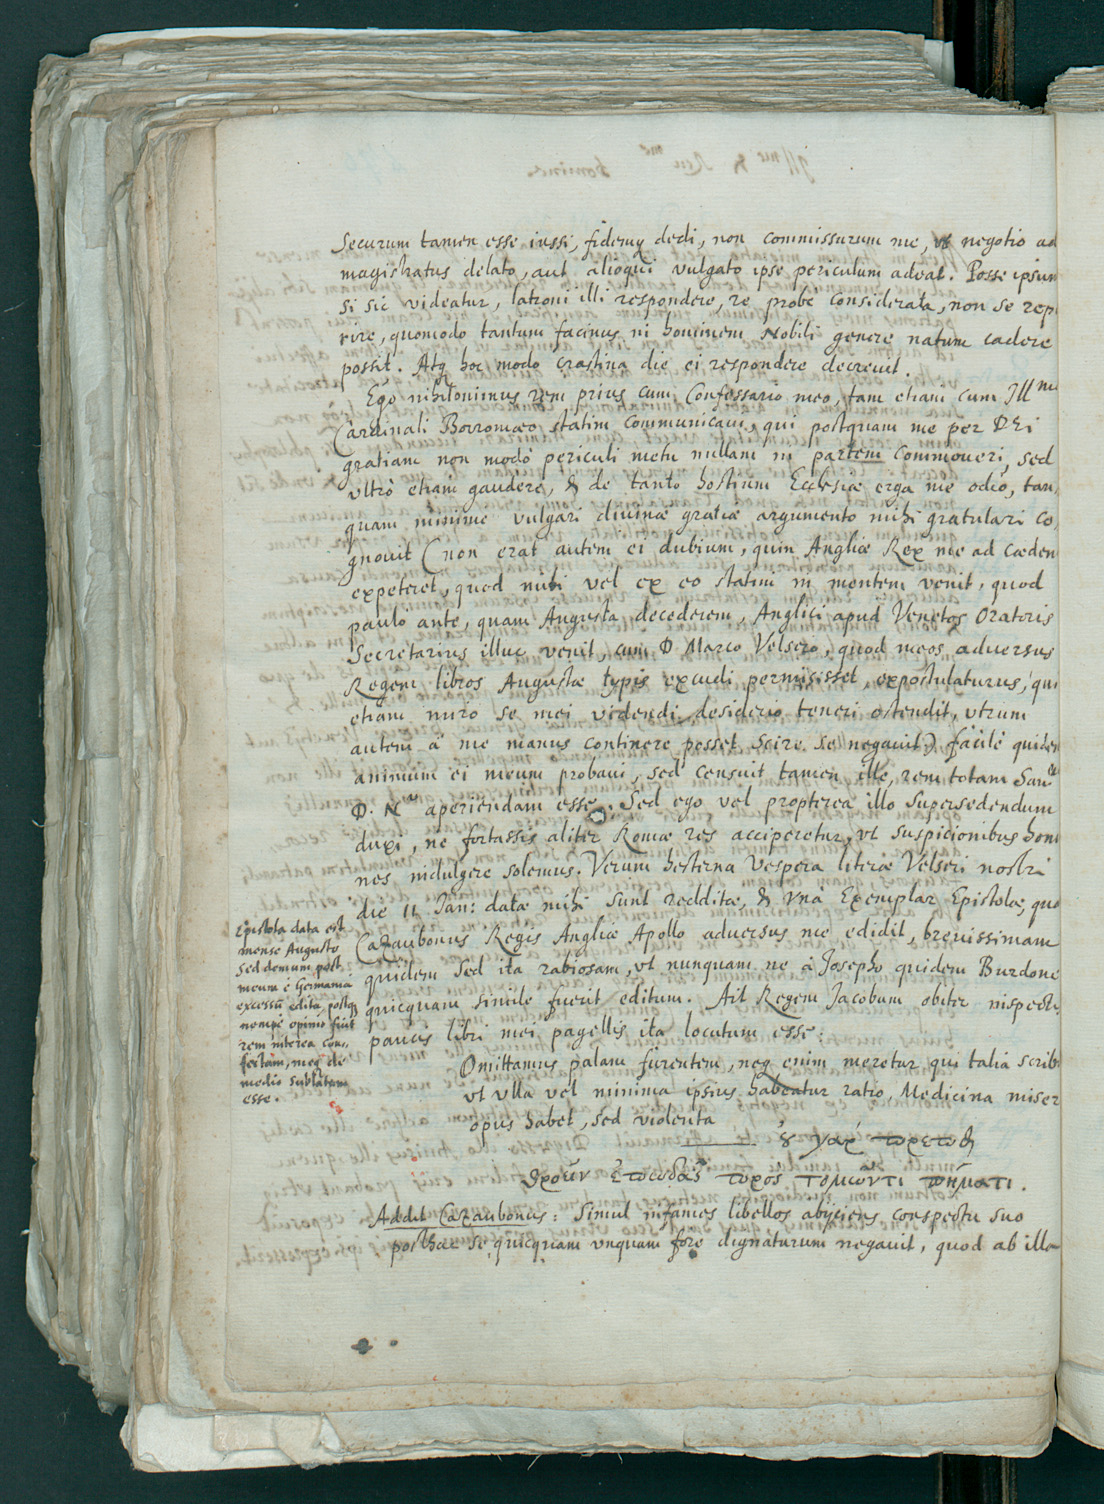 Securum tamen esse iussi, fidemq dedi, non commissurum me, vt negotio ad
magistratus delato, aut alioqui vulgato ipse periculum adeat. Posse ipsum
si sic videatur, latroni illi respondere, re probè considerata, non se repe
rire, quomodo tantum facinus in hominem Nobili genere natum cadere
possit. Atq hoc modo crastina die ei respondere decreuit.
Ego nihilominus rem prius cum Confessario meo, tam etiam cum Ill.mo
Cardinali Borromæo statim communicaui, qui postquam me per DEi
gratiam non modò periculi metu nullam in partem commoueri, sed
vltrò etiam gaudere, & de tanto hostium Ecclesiæ erga me odio, tan,
quam minime vulgari diuinæ gratiæ argumento mihi gratulari co,
gnouit (non erat autem ei dubium, quin Angliæ Rex me ad cæden
expeteret, quod mihi vel ex eo statim in mentem venit, quod
paulo ante, quam Augusta decederem, Anglici apud Venetos Oratoris
Secretarius illuc venit, cum D. Marco Velsero, quod meos aduersus
Regem libros Augustæ typis excudi permisisset, expostulaturus, qui
etiam miro se mei videndi desiderio teneri ostendit, vtrum
autem à me manus continere posset scire se negauit) facilè quidem
animum ei meum probaui, sed censuit tamen ille, rem totam San
D. N. aperiendam esse. Sed ego vel propterea illo supersedendum
duxi, ne fortassis aliter Romæ res acciperetur, vt suspicionibus homi
nes indulgere solemus. Verum hesterna vespera literæ Velseri nostri
die 11 Jan: datæ mihi sunt redditæ, & vnà Exemplar Epistolæ, qua
Cazaubonus Regis Angliæ Apollo aduersus me edidit, breuissimam
quidem sed ita rabiosam, vt nunquam ne à Josepho quidem Burdone
quicquam simile fuerit editum. Ait Regem Jacobum obiter inspectis
paucis libri mei pagellis ita locutum esse:
Omittamus palam furentem, neq enim meretur qui talia scribit
vt vlla vel minima ipsius habeatur ratio, Medicina miser
opus habet, sed violenta
Addit Cazaubonus: Simul infames libellos abijciens conspectu suo
posthac se quicquam vnquam fore dignaturum negauit, quod ab illo
Epistola data est
mense Augusto
sed demum post
meum è Germania
excessum edita postq
nempè opinio fuit
rem interea con,,
fectam, meq de
medio sublatum
esse.